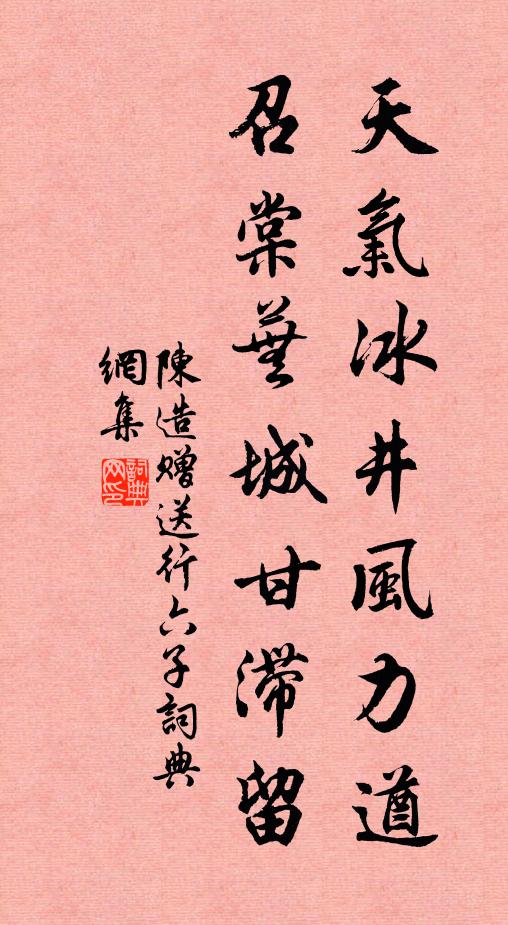 天氣冰井風力遒
召棠蕪城甘滯留
陳造贈送行六子詞典
網集
詞典
网印